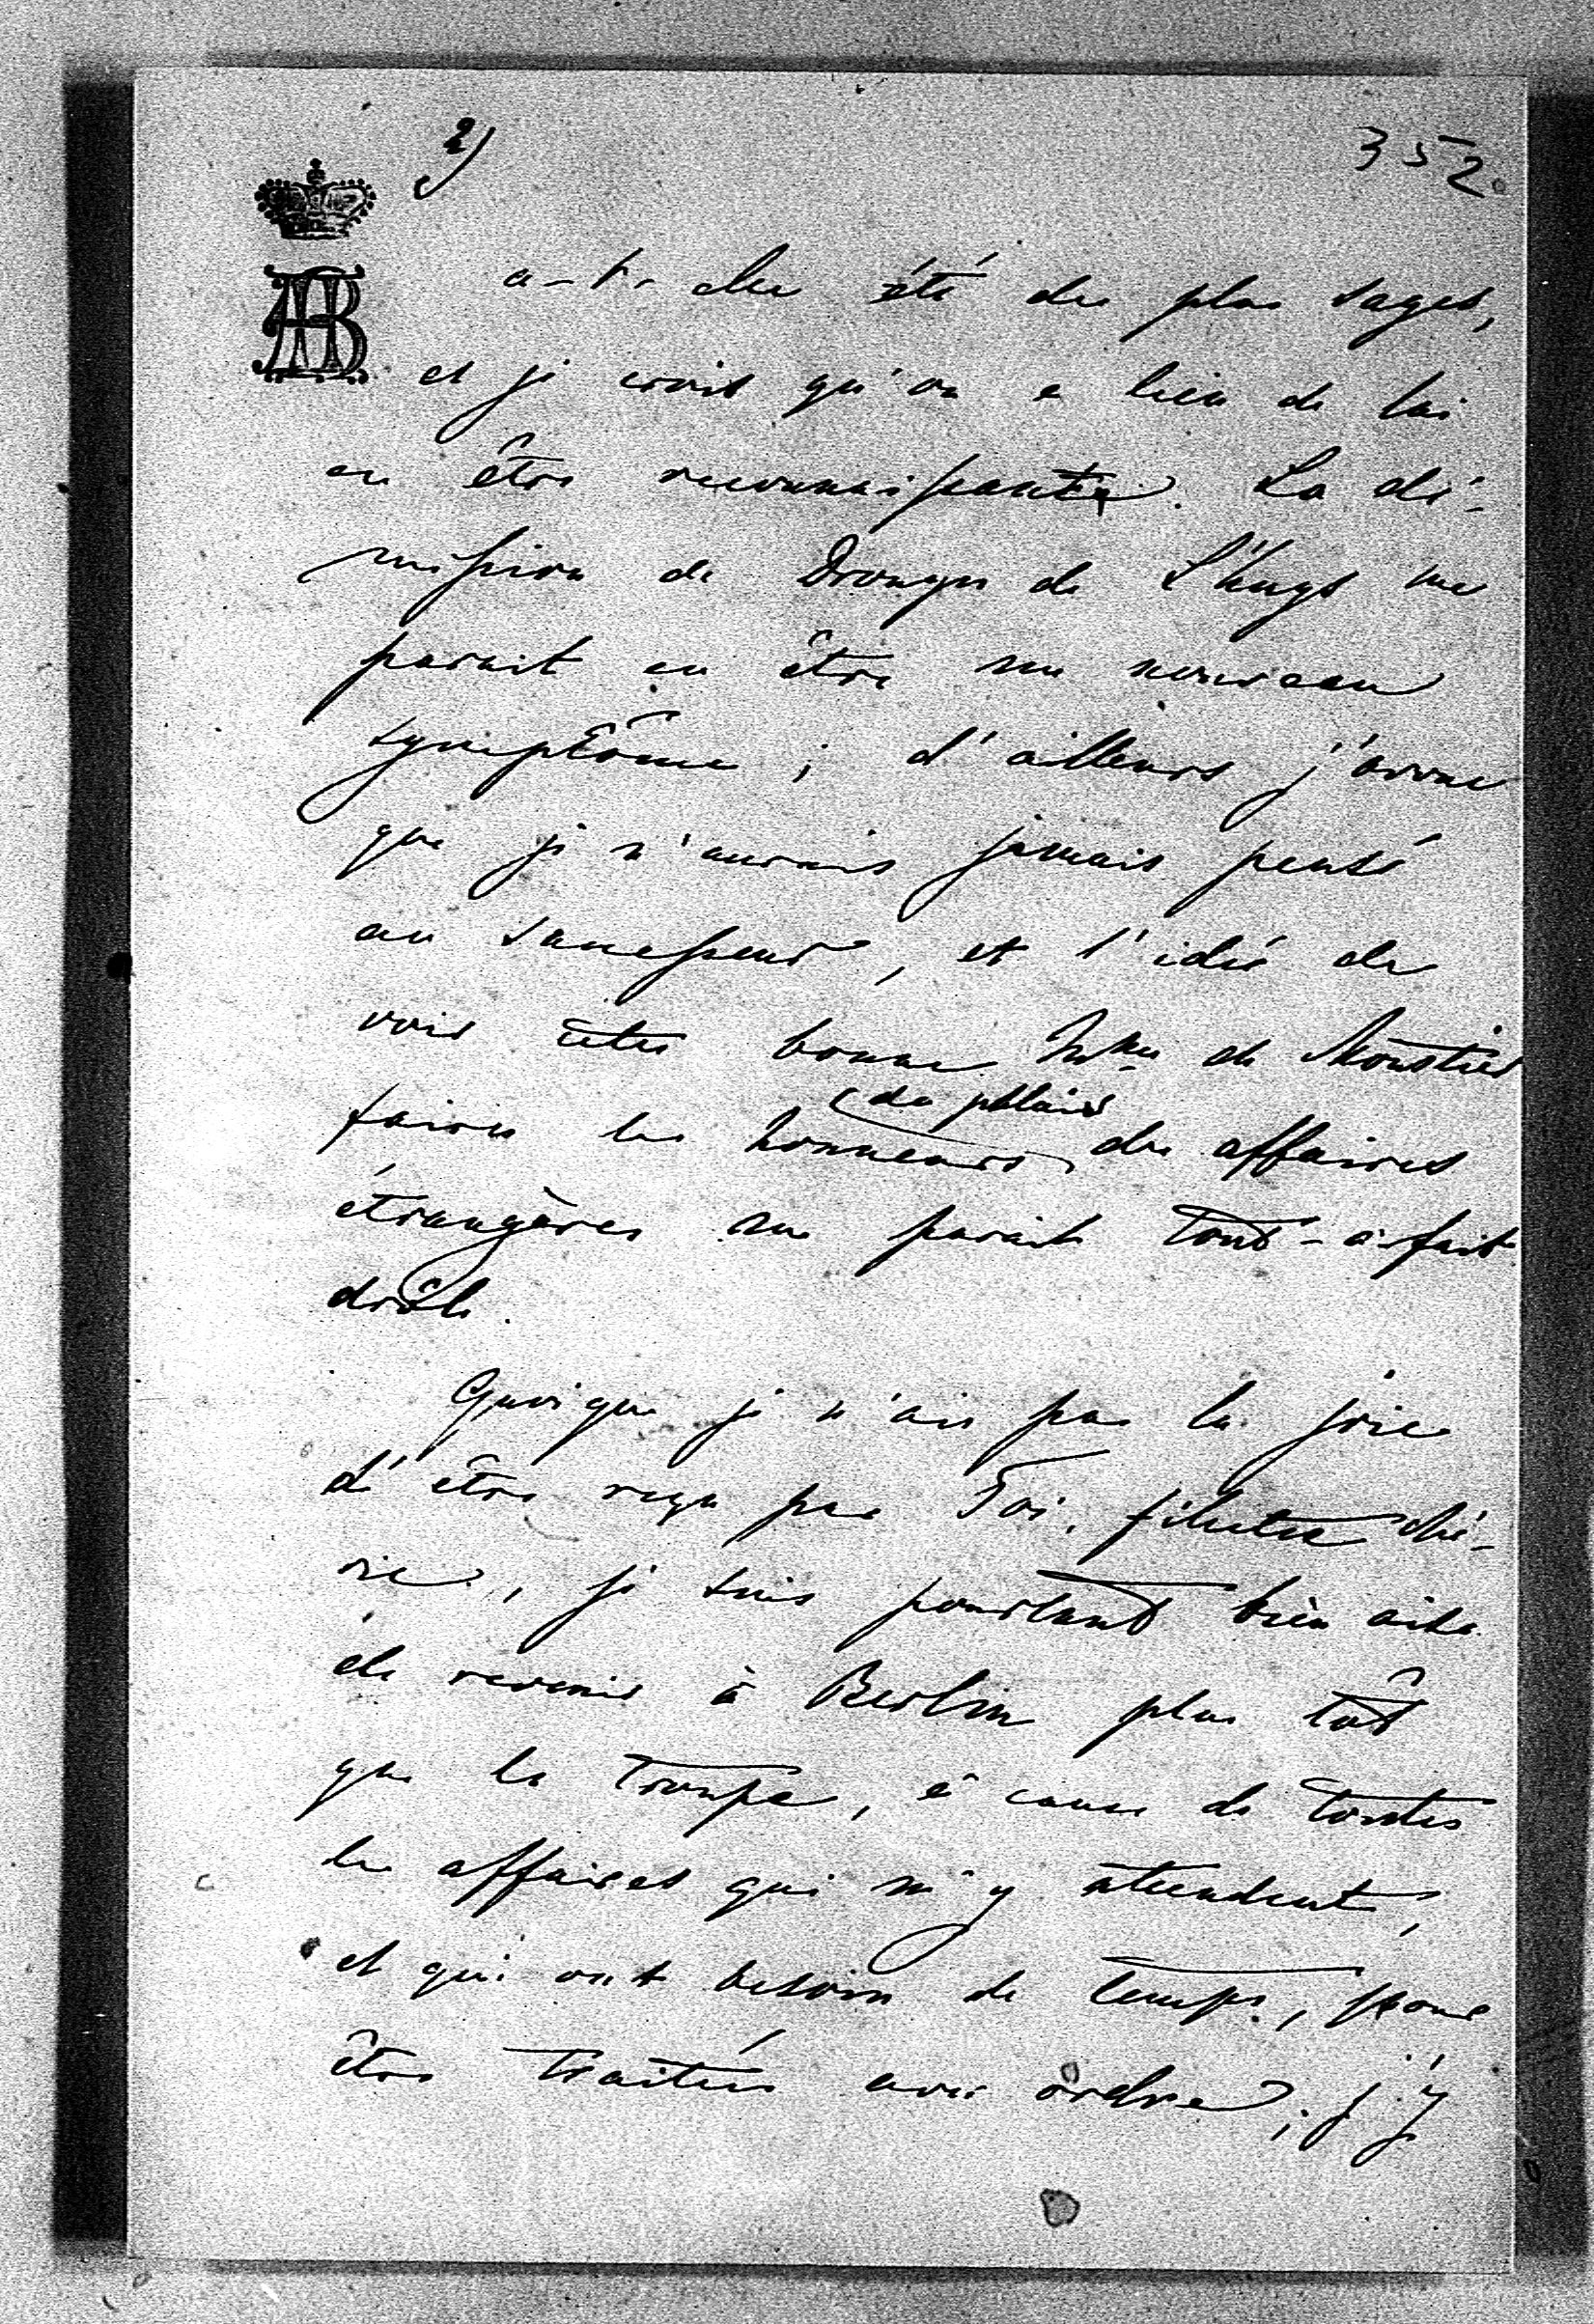 2)
352
AB
a-t-elle été des plus sages,
et je crois qu'on a lieu de lui
en être reconnaissante. La dé-
mission de Drouyn de L'huys me
parait en être un nouveau
symptôme ; d'ailleurs j'avoue
que je n'aurais jamais pensé
au successeur, et l'idée de
voir cette bonne Mme de Moustier
faire les honneurs (du palais des affaires
étrangères me parait tout-à-fait
drôle.
Quoique je n'aie pas la joie
d'être reçu par Toi, filutte ché-
rie, je suis pourtant bien aise
de revenir à Berlin plus tôt
que la troupe, à cause de toutes
les affaires qui m'y attendent,
et qui ont besoin de temps, pour
être traitées avec ordre ; j'y